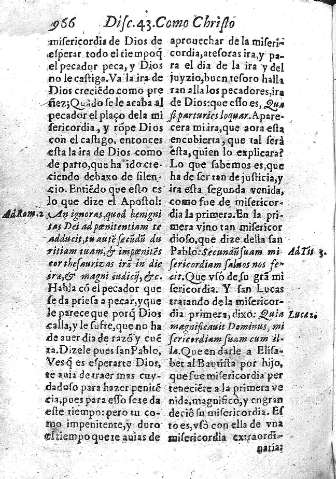 966 Disc. 43. Como Christo
misericordia de Dios de
esperar todo el tiempo que
el pecador peca, y Dios
no le castiga. Va la ira de
Dios creciẽdo como pre
ñez; Quãdo se le acaba al
pecador el plaço de la mi
sericordia, y rõpe Dios
con el castigo, entonces
esta la ira de Dios como
de parto, que ha ido cre
ciendo debaxo de silen-
cio. Entiẽdo que esto es
lo que dize el Apostol:
Ad Rom. 2. An ignoras, quod benigni
tas Dei ad pœnitentiam te
adducit, tu autẽ secũdũ du
ritiam tuam, & impœnitẽs
cor thesaurizas irã in die
iræ, & magni iudicij, &c.
Habla cõ el pecador que
se da priesa a pecar, y que
le parece que porq̃ Dios
calla, y le sufre, que no ha
de auer dia de razõ y cuẽ
ta. Dizele pues san Pablo,
Ves q̃ es esperarte Dios,
te auia de traer mas cuy-
dadoso para hazer peniẽ
cia, pues para esso se te da
este tiempo: pero tu co-
mo impenitente, y duro
es tiempo que te auias de
aprouechar de la miseri-
cordia, atesoras ira, y pa-
ra el dia de la ira y del
juyzio, buen tesoro halla
ran alla los pecadores, ira
de Dios: que esso es, Qua
si parturiẽs loquar. Apare-
cera mi ira, que aora esta
encubierta, que tal serà
esta, quien lo explicara?
Lo que sabemos es, que
ha de ser tan de justicia, y
ira esta segunda venida,
como fue de misericor-
dia la primera. En la pri-
mera vino tan misericor
dioso, que dize della san
Pablo: Secundũm suam mi Ad Tit. 3.
sericordiam saluos nos fe-
cit. Que vsò de su grã mi
sericordia. Y san Lucas
tratando de la misericor-
dia primera, dixo: Quia Luca 1.
magnificauit Dominus, mi
sericordiam suam cum il-
la. Que en darle a Elisa-
bet al Bautista por hijo,
que fue misericordia per
teneciẽte a la primera ve
nida, magnificò, y engran
deciò su misericordia. Es
to es, vsò con ella de vna
misericordia extraordi-
naria: